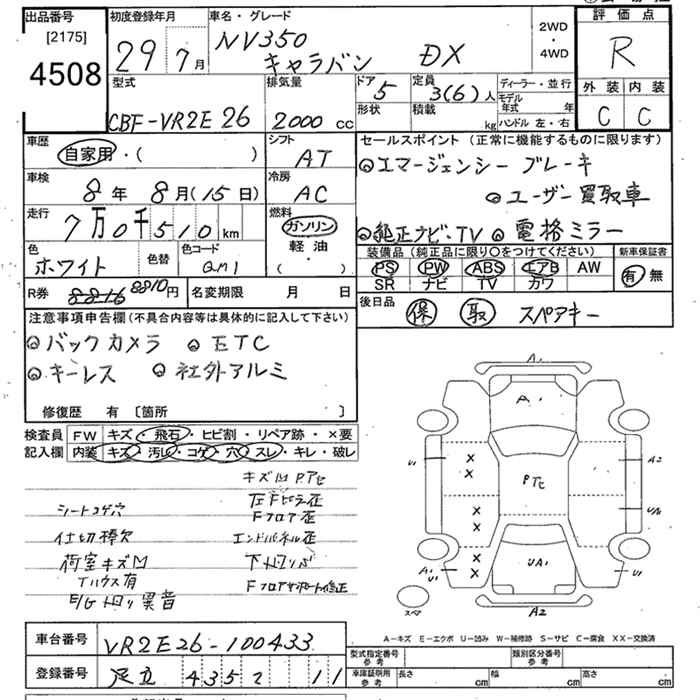 出品番号
[2175]
4508
初度登録年月
29 7月
車名・グレード
NV350
キャラバン DX
2WD
・
4WD
評価点
R
外装 内装
C C
型式
CBF-VR2E26
排気量
2000 cc
ドア
5
定員
3(6)人
形状
積載
kg
ディーラー・並行
モデル年式 年
ハンドル 左・右
車歴
自家用・( )
シフト
AT
車検
8年 8月(15日)
冷房
AC
走行
7万0千510km
燃料
ガソリン
軽油
( )
色
ホワイト
色替
色コード
QM1
R券 8816 8810円
名変期限 月 日
セールスポイント(正常に機能するものに限ります)
エマージェンシーブレーキ
ユーザー買取車
純正ナビ・TV 電格ミラー
装備品(純正品に限り○をつけてください)
PS PW ABS エアB AW
SR ナビ TV カワ
新車保証書
有 無
後日品
保 取 スペアキー
注意事項申告欄(不具合内容等は具体的に記入して下さい)
バックカメラ ETC
キーレス 社外アルミ
修復歴 有 〔箇所 〕
検査員
記入欄
FW キズ・飛石・ヒビ割・リペア跡・×要
内装 キズ・汚レ・コゲ・穴・スレ・キレ・破レ
シートコゲ穴
仕切棒欠
荷室キズM
Tハウス有
E/G回り異音
キズM Pアセ
左Fピラ歪
Fフロア歪
エンドパネル歪
下回りサビ
Fフロアサポート修正
A1
A1
U1
A2
PTヒ
UA1
A1
U1
U1
A2
スペア
A-キズ E-エクボ U-凹み W-補修跡 S-サビ C-腐食 XX-交換済
車台番号
VR2E26-100433
登録番号
足立 4352 11
型式指定番号
参考
類別区分番号
参考
車庫証明用
参考
長さ cm
幅 cm
高さ cm